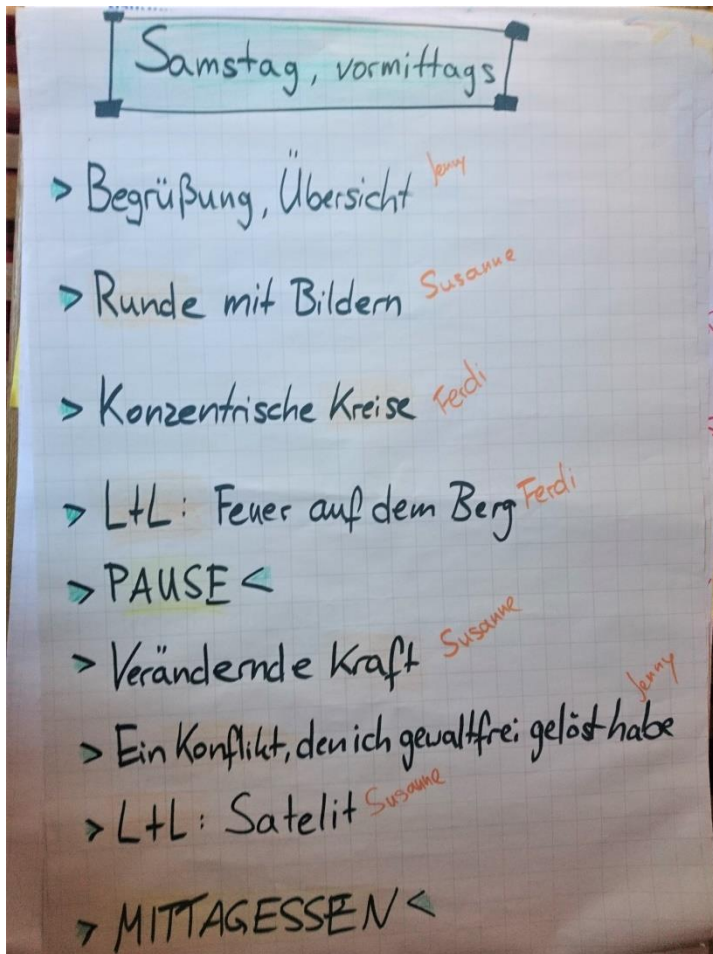 Samstag, vormittags
> Begrüßung, Übersicht Jenny
> Runde mit Bildern Susanne
> Konzentrische Kreise Ferdi
> L+L: Feuer auf dem Berg Ferdi
> PAUSE <
> Verändernde Kraft Susanne
> Ein Konflikt, den ich gewaltfrei gelöst habe Jenny
> L+L: Satelit Susanne
> MITTAGESSEN <